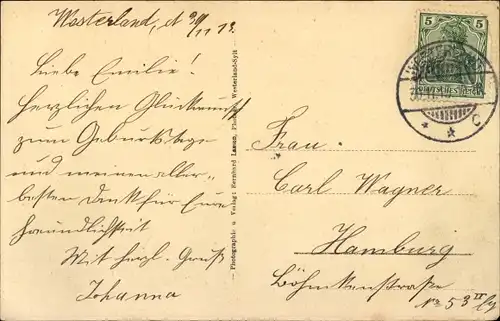 Westerland, d 30/11 13.
Liebe Emilie!
Herzlichen Glückwunsch
zum Geburtstage
und meinen aller-
besten Dank für Eure
Freundlichkeit
Mit herzl. Gruß
Johanna
Photographie u Verlag: Bernhard Lassen, Westerland-Sylt
5
5
Frau
Carl Wagner
Hamburg
Böhmkenstraße
No 53 IV